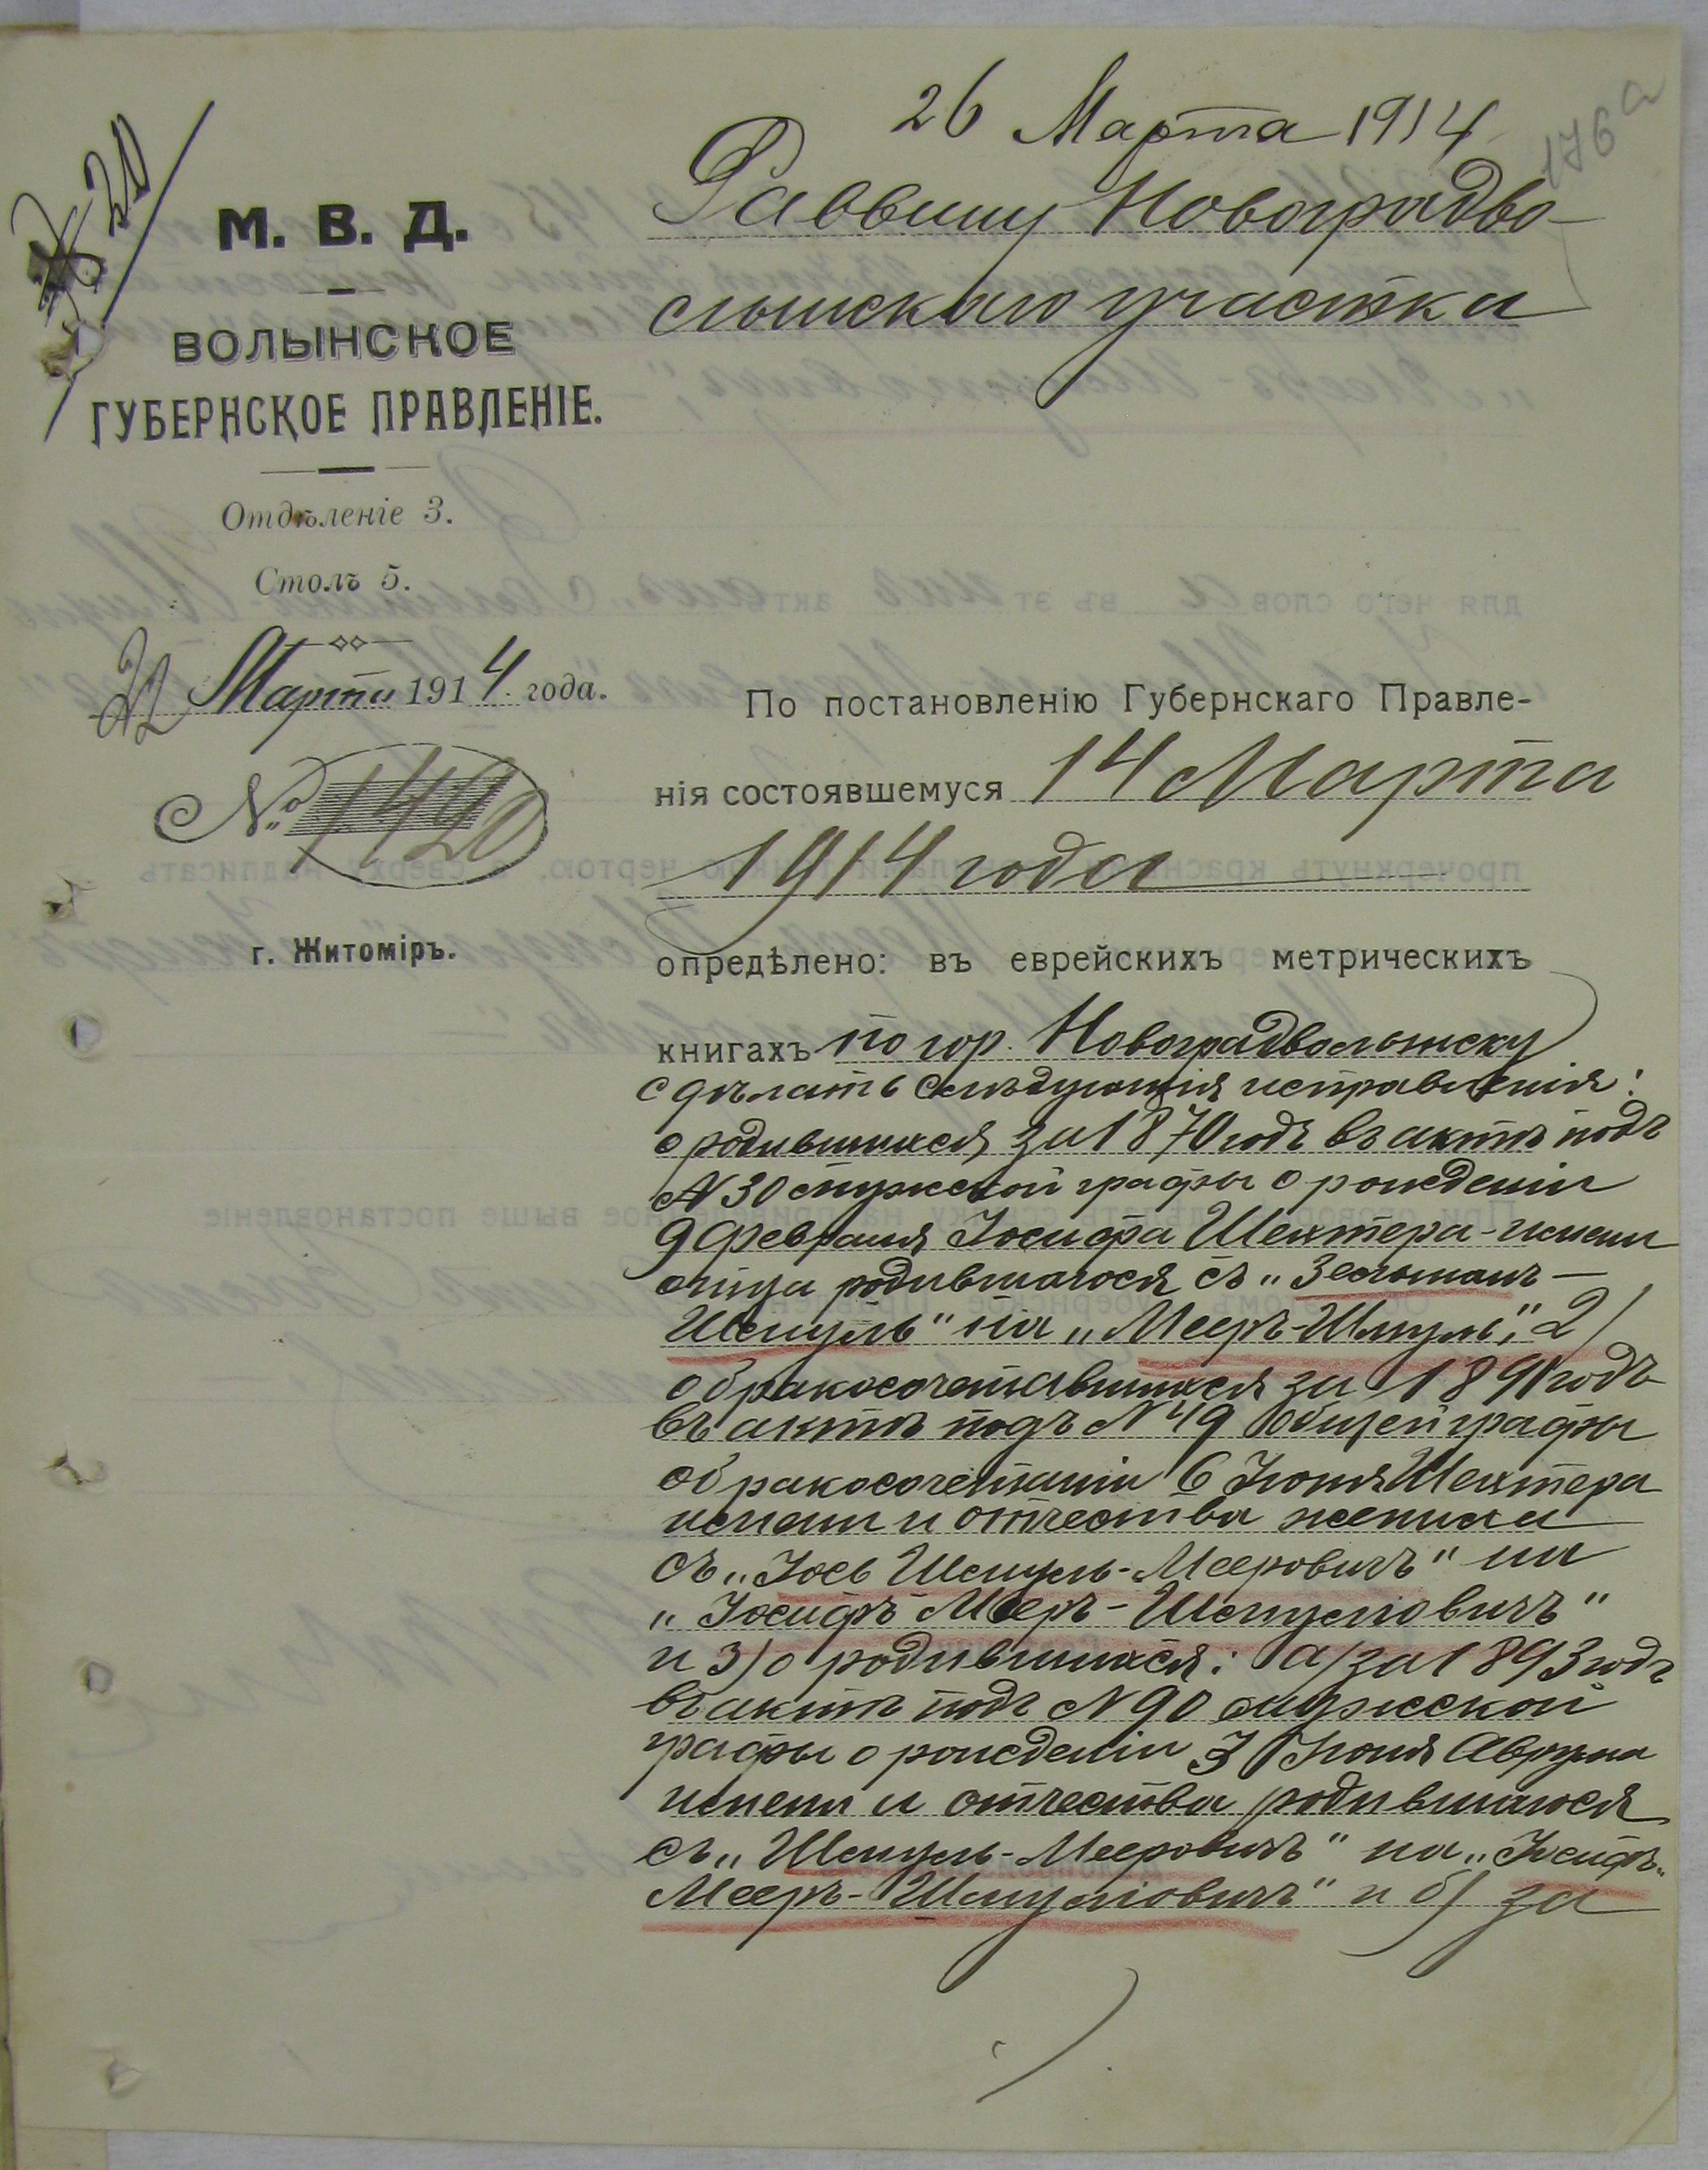 26 Марта 1914
176а
№ 20
Раввину Новоградво-
лынскаго участка
М. В. Д.
ВОЛЫНСКОЕ
ГУБЕРНСКОЕ ПРАВЛЕНІЕ.
Отдѣленіе 3.
Столъ 5.
22 Марта 1914 года.
№ 1420
г. Житоміръ.
По постановленію Губернскаго Правле-
нія состоявшемуся 14 Марта
1914 года
опредѣлено: въ еврейскихъ метрическихъ
книгахъ по гор. Новоградволынску
сдѣлать слѣдующія исправленія:
о родившихся за 1870 годъ въ актѣ подъ
N 30 мужской графы о рожденіи
9 Февраля Іосифа Шехтера - имени
отца родившагося съ „Зельманъ-
Шмуль" на „Мееръ-Шмуль", 2/
о бракосочетавшихся за 1891 годъ
въ актѣ подъ N 49 общей графы
о бракосочетаніи 6 Іюня Шехтера
имени и отчества жениха
съ „Іось Шмуль-Мееровичъ" на
„Іосифъ Мееръ-Шмулювичъ"
и 3) о родившихся: а/ за 1893 годъ
въ актѣ подъ N 90 мужской
графы о рожденіи 3 Іюня Аврума
имени и отчества родившагося
съ „Шмуль-Мееровичъ" на „Іосифъ-
Мееръ-Шмулювичъ" и б/ за